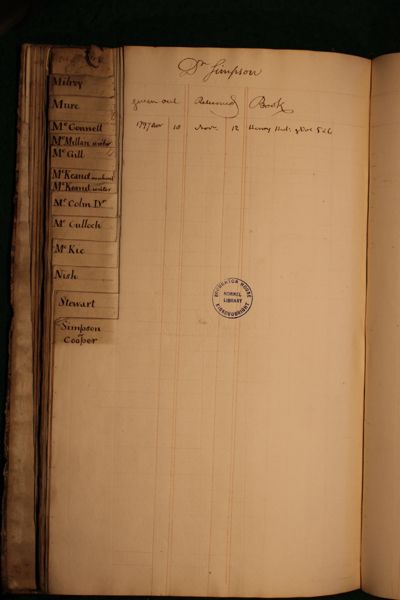 Dr Simpson
given out Returned Book
1797 Nov 10 Nov. 12 Henry Hist.
Milroy
Mure
Mc Connell
Mc Millan writer
Mc Gill
Mc Keand
Mc Keand writer
Mc Colm Dr
Mc Culloch
Mc Kie
Nish
Stewart
Simpson
Cooper
BROUGHTON HOUSE
HORNEL
LIBRARY
KIRKCUDBRIGHT